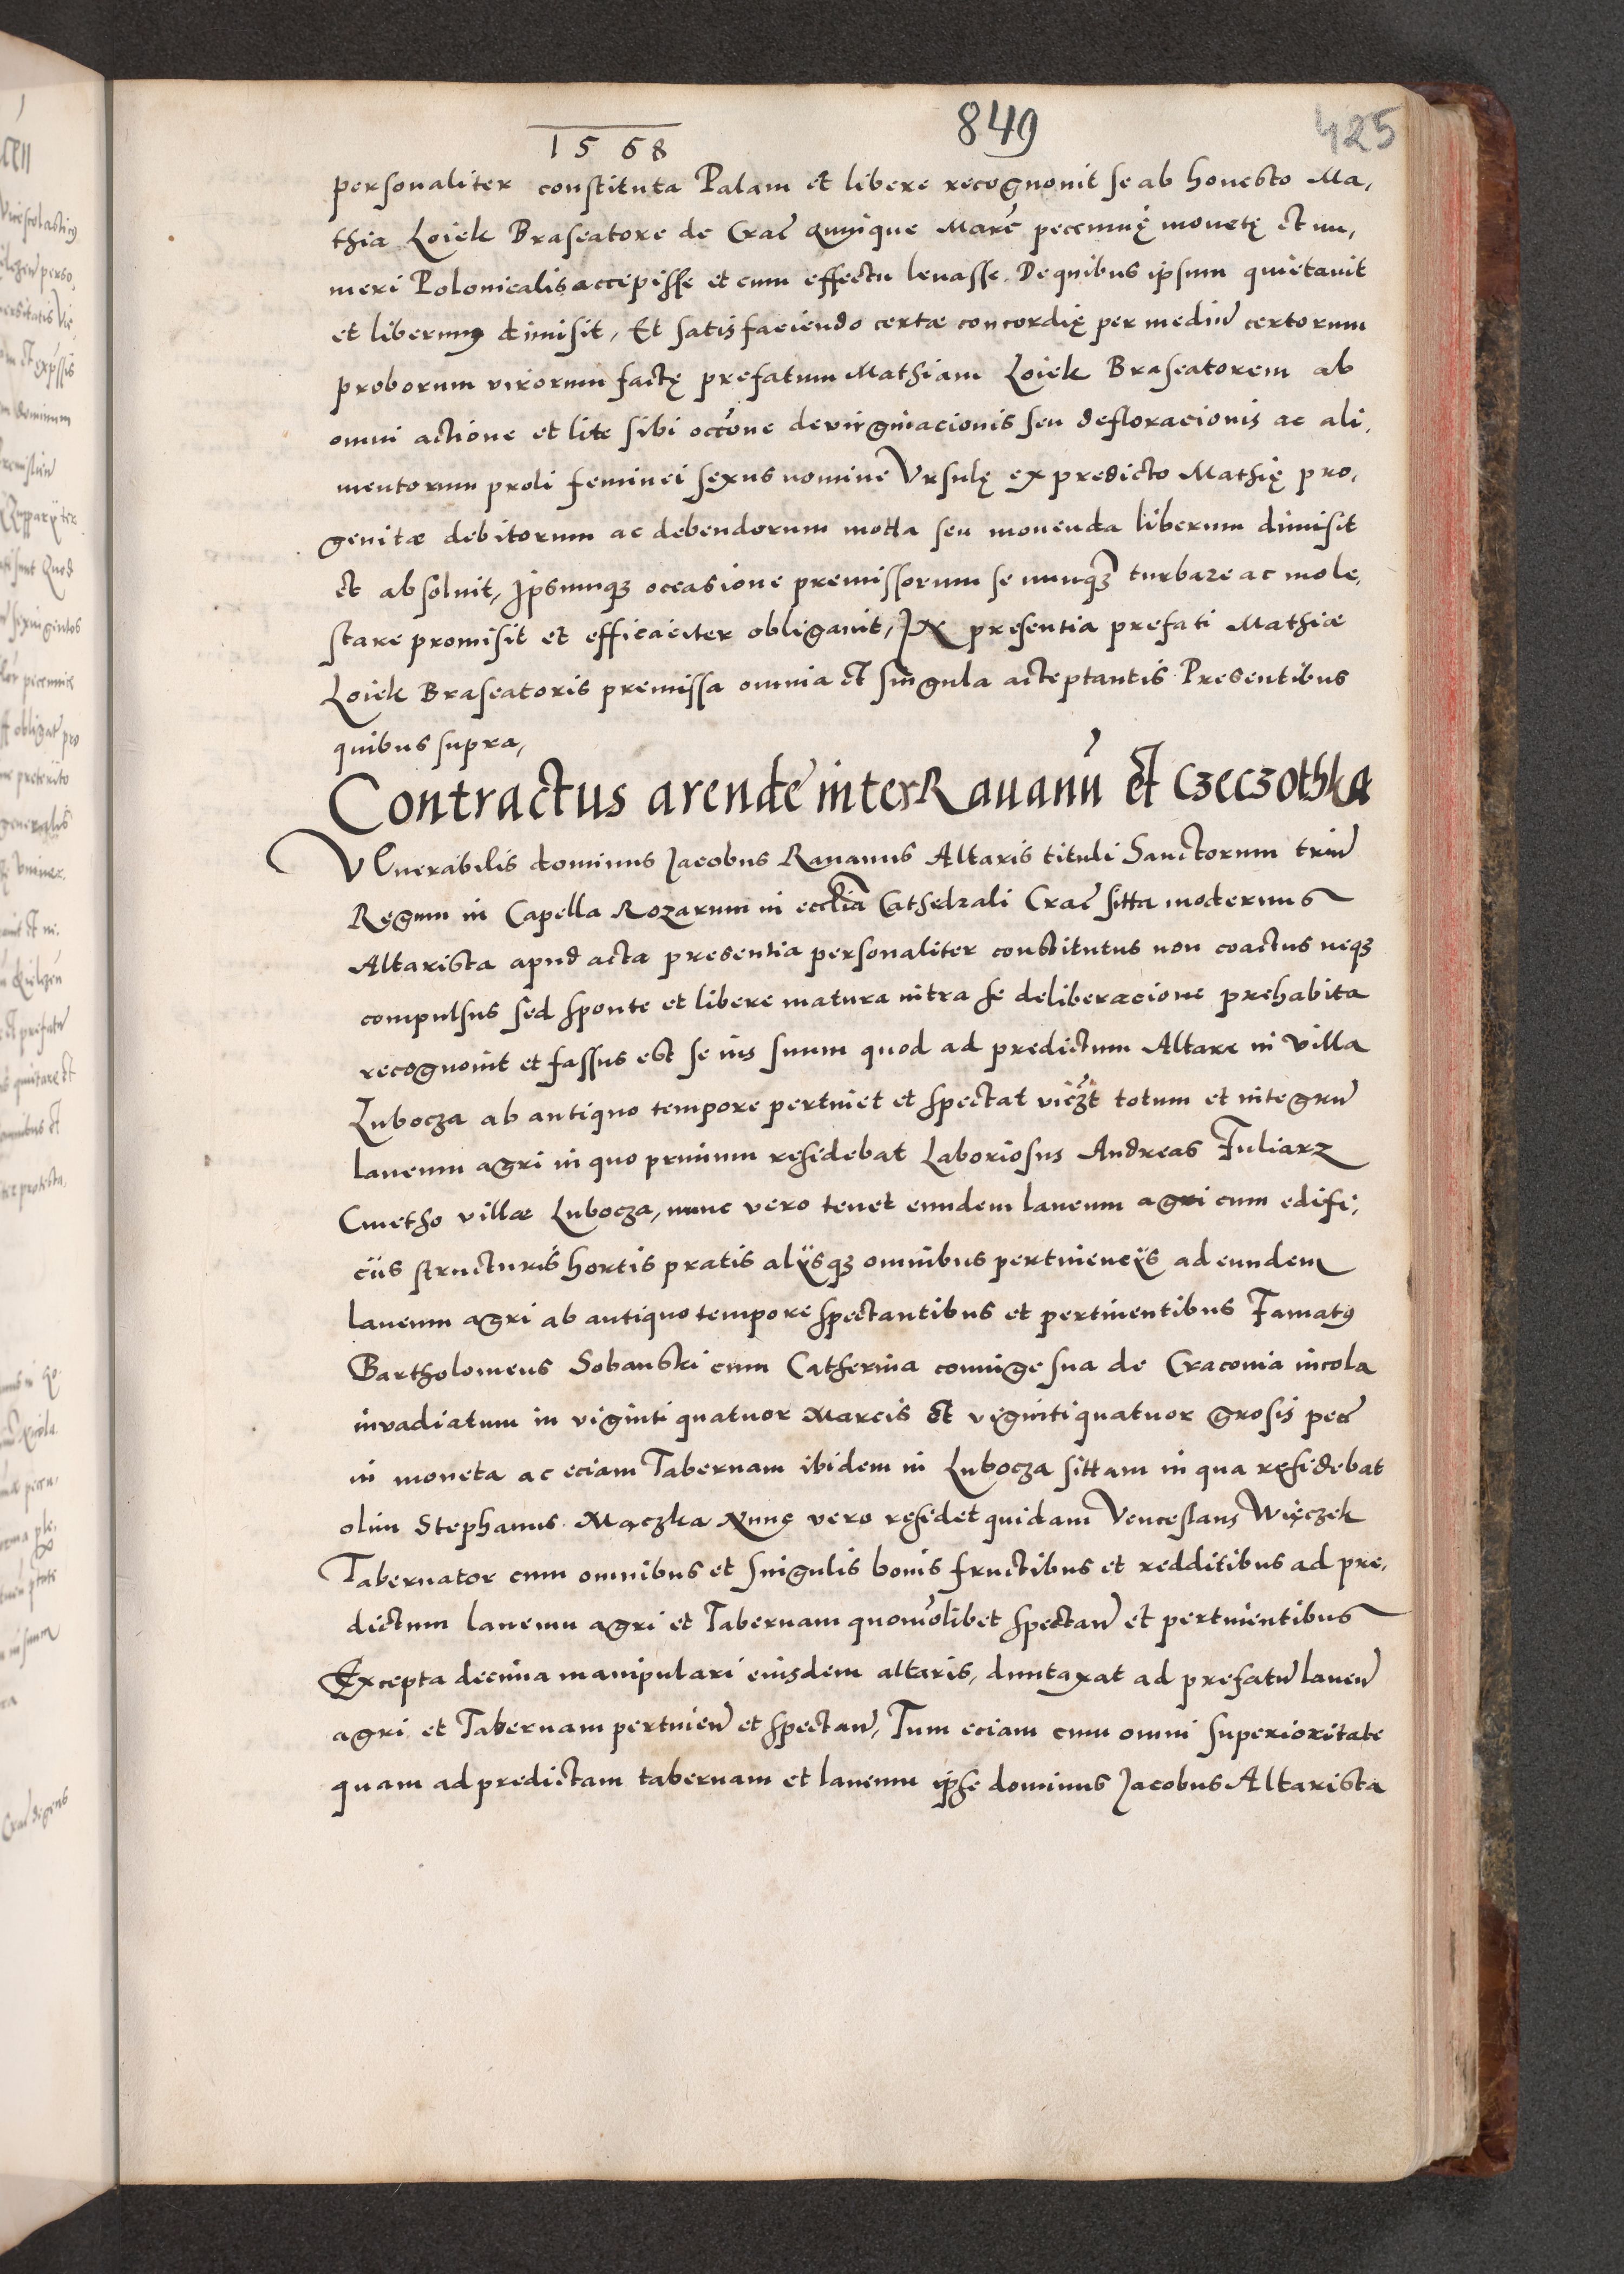 849
425
1568
personaliter constituta Palam et libere recognouit se ab honesto Ma,
thia Loiek Braseatore de Crac̃ quinque Marc̃ pecunię monetę et nu,
meri Polonicalis accepisse et cum effectu leuasse. De quibus ipsum quietauit
et liberum dimisit, Et satisfaciendo certæ concordię per mediũ certorum
proborum virorum factę prefatum Mathiam Loiek Braseatorem ab
omni actione et lite sibi occõne devirginacionis seu defloracionis ac ali,
mentorum proli feminei sexus nomine Vrsulę ex predicto Mathię pro,
genitæ debitorum ac debendorum motta seu mouenda liberum dimisit
et absoluit, Ipsumq3 occasione premissorum se nunq3 turbare ac mole,
stare promisit et efficaciter obligauit, In presentia prefati Mathiæ
Loiek Braseatoris premissa omnia et singula acceptantis Presentibus
quibus supra,
Contractus arende inter Rauanũ et Czeczothka
VEnerabilis dominus Jacobus Rauanus Altaris tituli Sanctorum triũ
Regum in Capella Rozarum in ecclĩa Cathedrali Crac̃ sitta modernus
Altarista apud acta presentia personaliter constitutus non coactus neq3
compulsus sed sponte et libere matura intra se deliberacione prehabita
recognouit et fassus est se ius suum quod ad predictum Altare in villa
Lubocza ab antiquo tempore pertinet et spectat vicz̃t totum et integrũ
laneum agri in quo primum residebat Laboriosus Andreas Fuliarz
Cmetho villæ Lubocza, nunc vero tenet eundem laneum agri cum edifi,
ciis structuris hortis pratis alÿsq3 omnibus pertinencÿs ad eundem
laneum agri ab antiquo tempore spectantibus et pertinentibus Famatꝰ
Bartholomeus Sobanski cum Catherina coniuge sua de Craconia incola
invadiatum in viginti quatuor Marcis et viginti quatuor grosis pec̃
in moneta ac eciam Tabernam ibidem in Lubocza sittam in qua residebat
olim Stephanus Mączka Nunc vero residet quidam Venceslaus Więczek
Tabernator cum omnibus et singulis bonis fructibus et redditibus ad pre,
dictum laneum agri et Tabernam quomõlibet spectañ et pertinentibus
Excepta decima manipulari eiusdem altaris, duntaxat ad prefatũ laneũ
agri et Tabernam pertinen̄ et spectañ, Tum eciam cum omni superioritate
quam ad predictam tabernam et laneum ipse dominus Jacobus Altarista